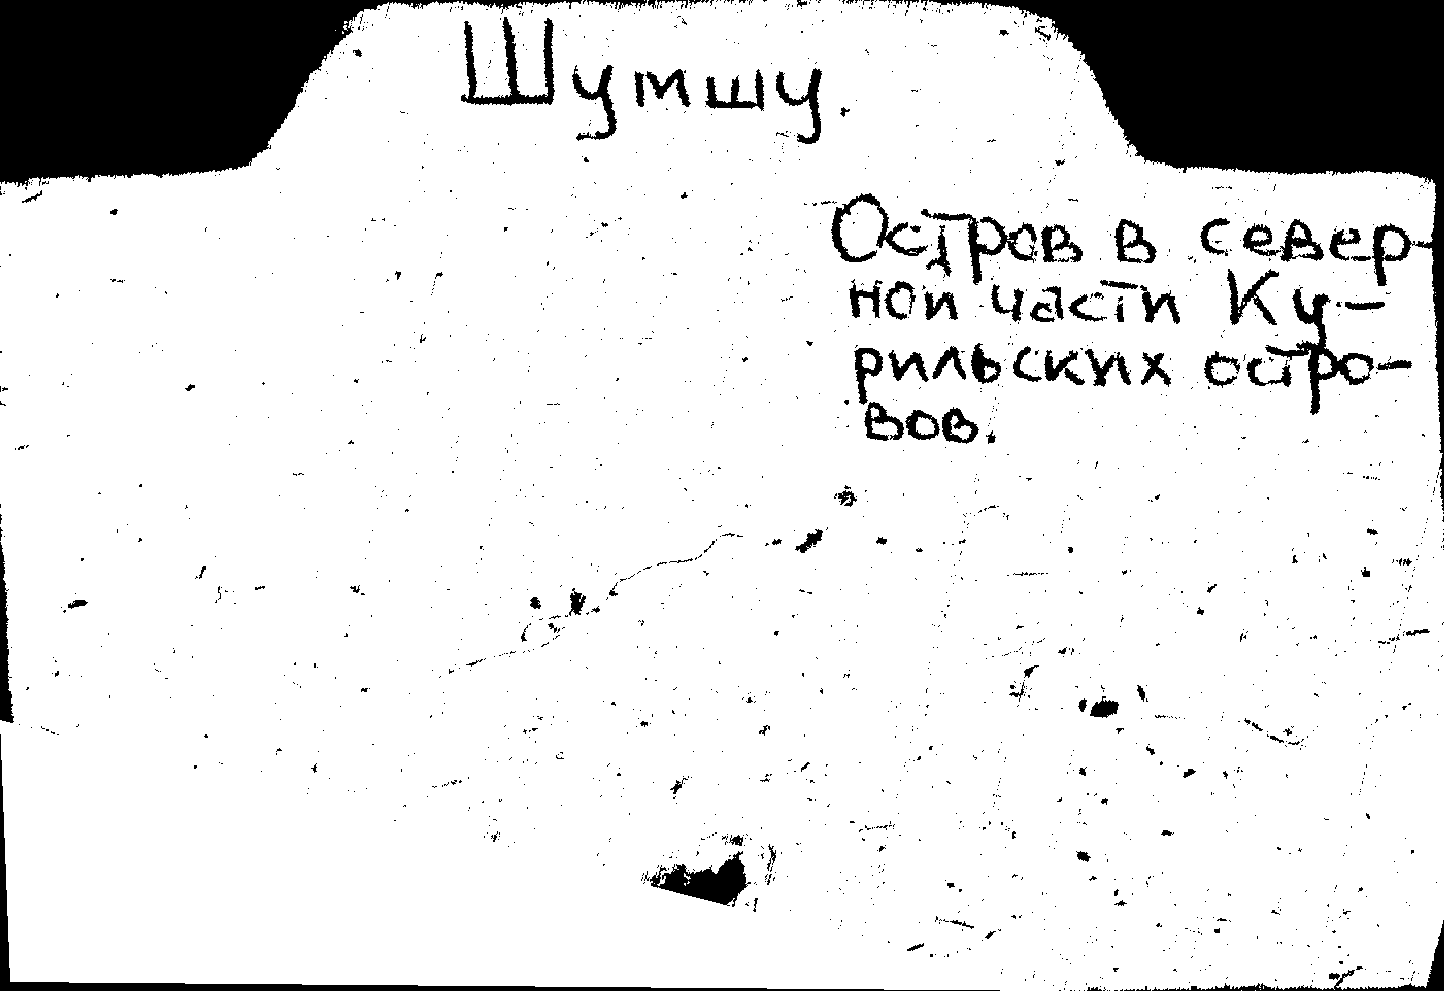 Шумшу.
Остров в север-
ной части Ку-
рильских остро-
вов.